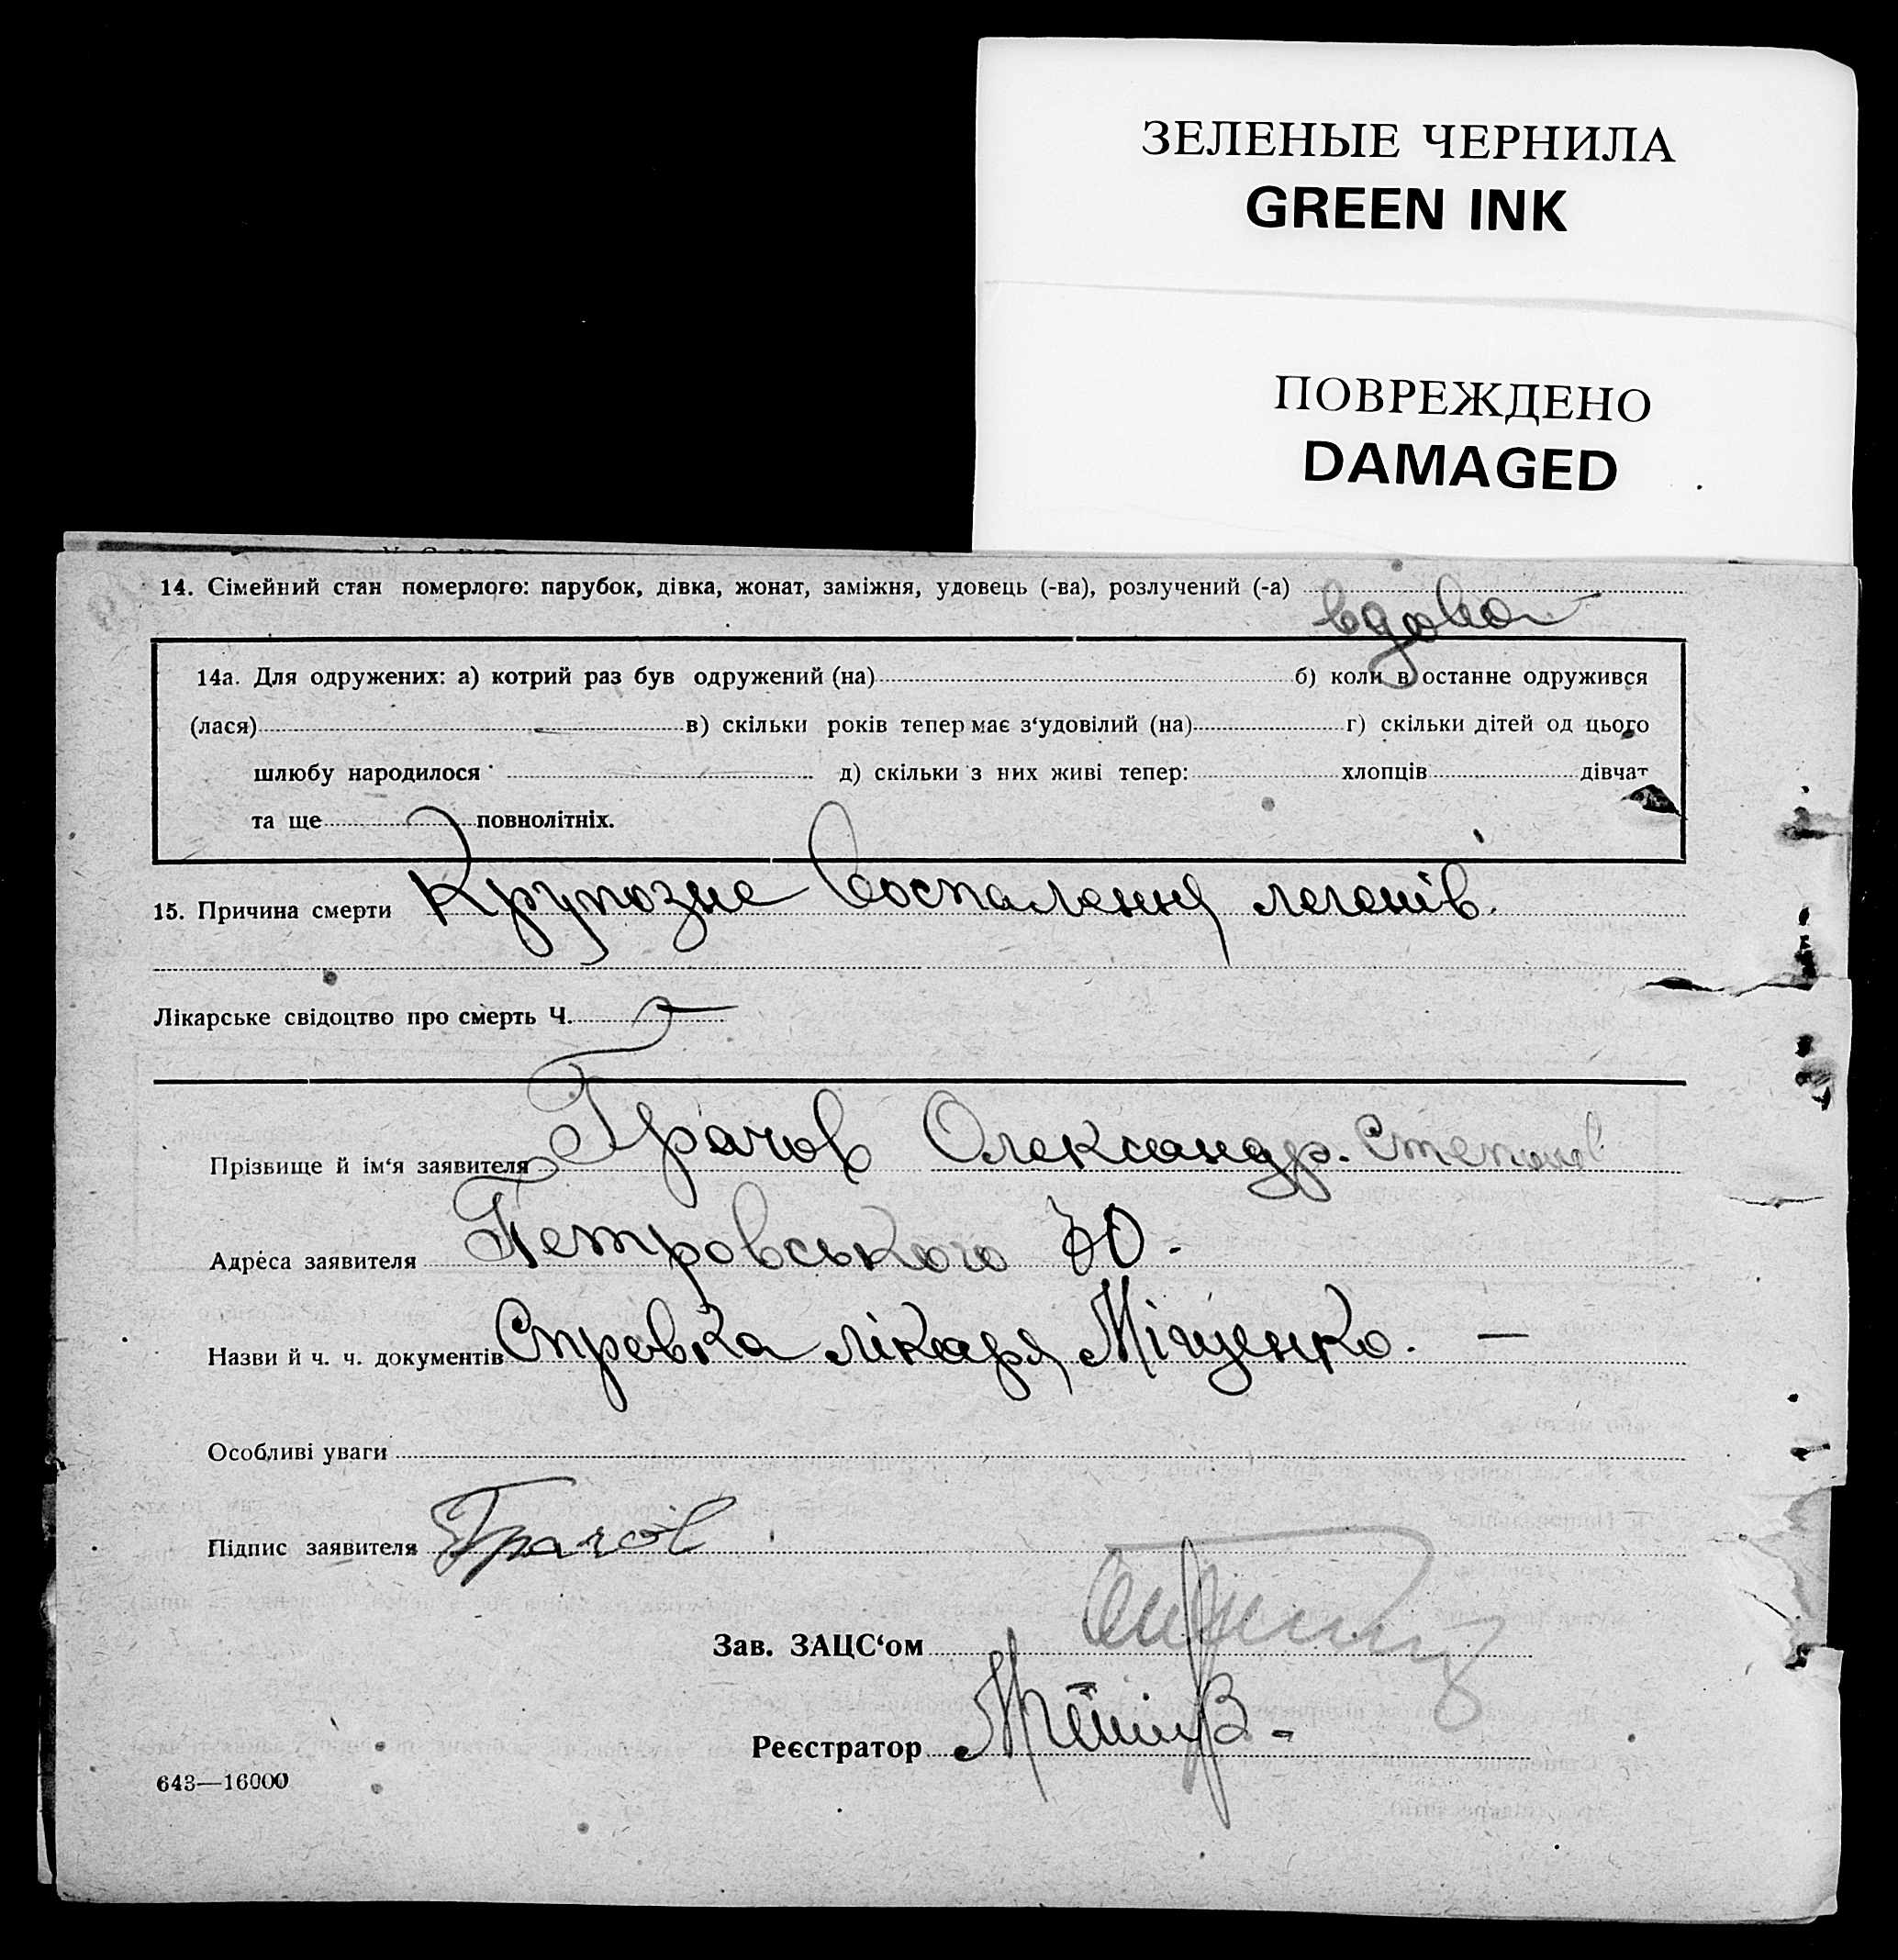 ЗЕЛЕНЫЕ ЧЕРНИЛА
GREEN INK
ПОВРЕЖДЕНО
DAMAGED
14. Сімейний стан померлого: парубок, дівка, жонат, заміжня, удовець (-ва), розлучений (-а) вдова
14а. Для одружених: а) котрий раз був одружений (на) б) коли в останне одружився
(лася) в) скільки років тепер має з‘удовілий (на) г) скільки дітей од цього
шлюбу народилося д) скільки з них живі тепер: хлопців дівчат
та ще повнолітніх.
15. Причина смерти Крупозне воспалення легенів.
Лікарське свідоцтво про смерть Ч.
Прізвище й ім‘я заявителя Грачов Олександр. Степанов
Адреса заявителя Петровського 30.
Назви й ч. ч. документів Справка лікаря Міщенко. —
Особливі уваги
Підпис заявителя Грачов
Зав. ЗАЦС‘ом
Реєстратор
643—16000